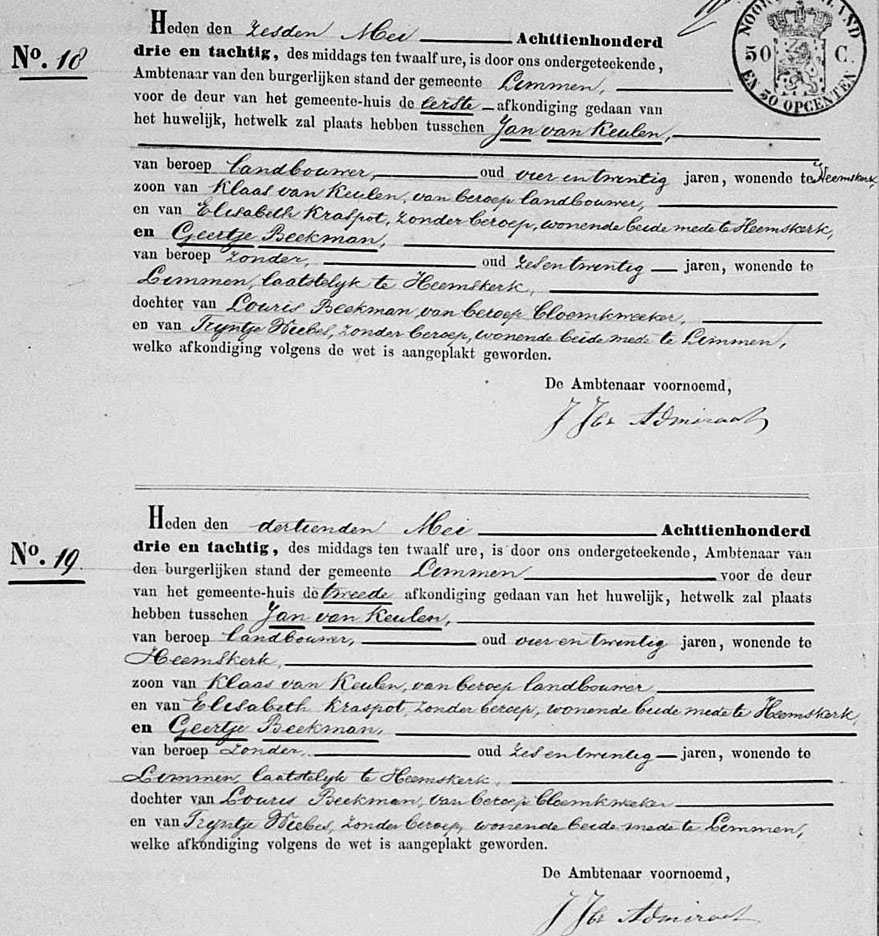 NOORD-HOLLAND
50 C.
EN 50 OPCENTEN
Heden den zesden Mei Achttienhonderd
No. 18
drie en tachtig, des middags ten twaalf ure, is door ons ondergeteekende,
Ambtenaar van den burgerlijken stand der gemeente Limmen,
voor de deur van het gemeente-huis de eerste afkondiging gedaan van
het huwelijk, hetwelk zal plaats hebben tusschen Jan van Keulen,
van beroep landbouwer, oud vier en twintig jaren, wonende te Heemskerk,
zoon van Klaas van Keulen, van beroep landbouwer,
en van Elisabeth Kraspot, zonder beroep, wonende beide mede te Heemskerk,
en Geertje Beekman,
van beroep zonder, oud zes en twintig jaren, wonende te
Limmen, laatstelyk te Heemskerk,
dochter van Louris Beekman, van beroep bloemkweeker,
en van Tryntje Wiebes, zonder beroep, wonende beide mede te Limmen,
welke afkondiging volgens de wet is aangeplakt geworden.
De Ambtenaar voornoemd,
Admiraal
Heden den dertienden Mei Achttienhonderd
No. 19
drie en tachtig, des middags ten twaalf ure, is door ons ondergeteekende, Ambtenaar van
den burgerlijken stand der gemeente Limmen voor de deur
van het gemeente-huis de tweede afkondiging gedaan van het huwelijk, hetwelk zal plaats
hebben tusschen Jan van Keulen,
van beroep landbouwer, oud vier en twintig jaren, wonende te
Heemskerk,
zoon van Klaas van Keulen, van beroep landbouwer
en van Elisabeth Kraspot, zonder beroep, wonende beide mede te Heemskerk,
en Geertje Beekman,
van beroep zonder, oud zes en twintig jaren, wonende te
Limmen, laatstelyk te Heemskerk,
dochter van Louris Beekman, van beroep bloemkweeker
en van Tryntje Wiebes, zonder beroep, wonende beide mede te Limmen,
welke afkondiging volgens de wet is aangeplakt geworden.
De Ambtenaar voornoemd,
Admiraal